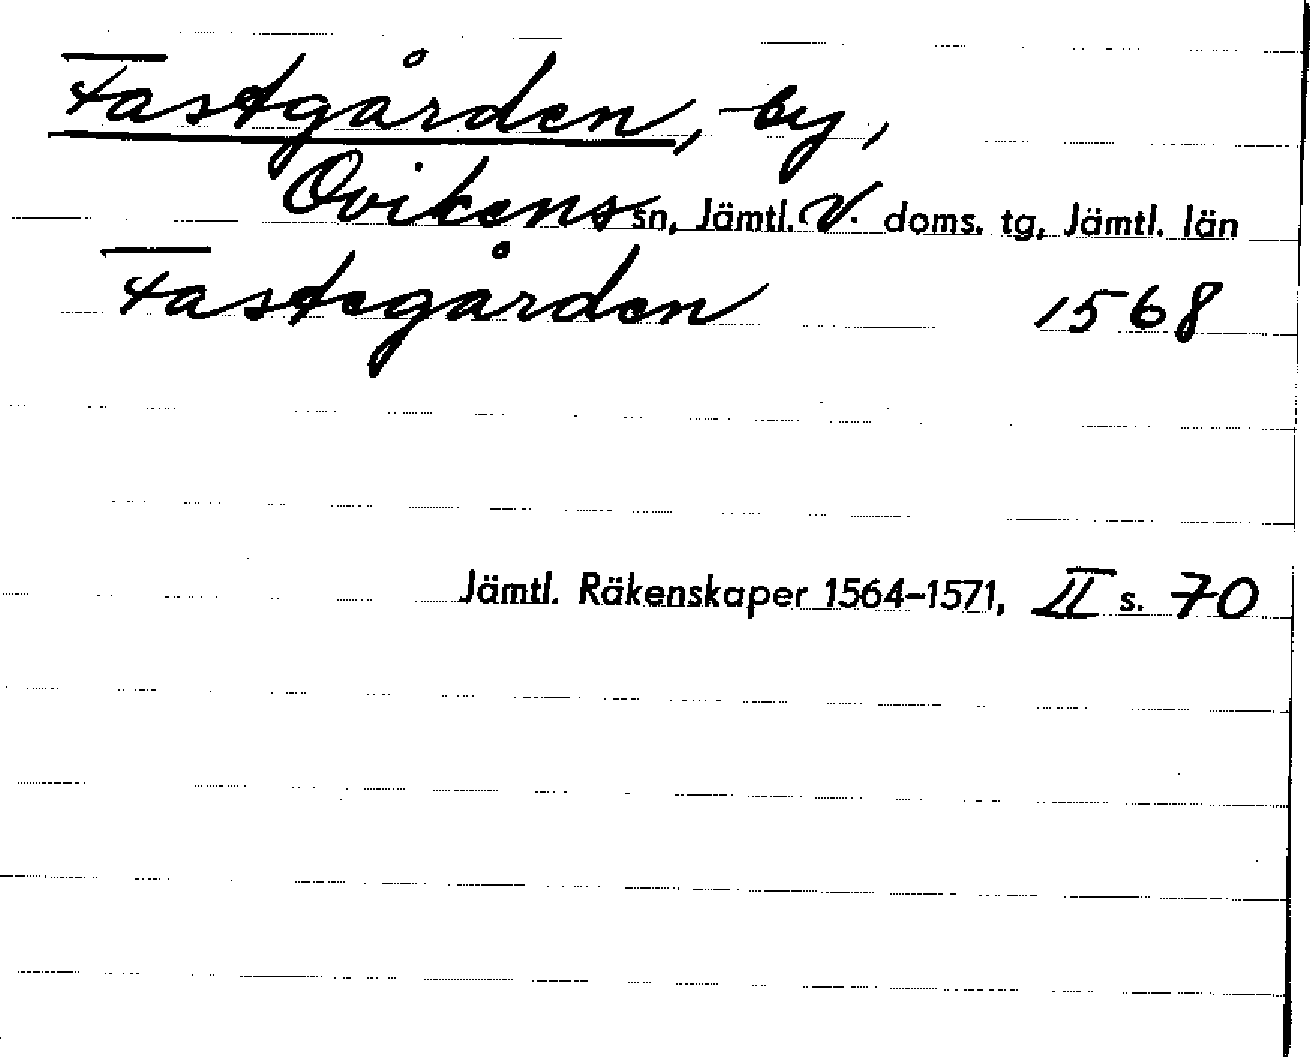 Fastgården, by,
Ovikens sn, Jämtl. V. doms. tg, Jämtl. län
Fastegården 1568
Jämtl. Räkenskaper 1564-1571, II s. 70